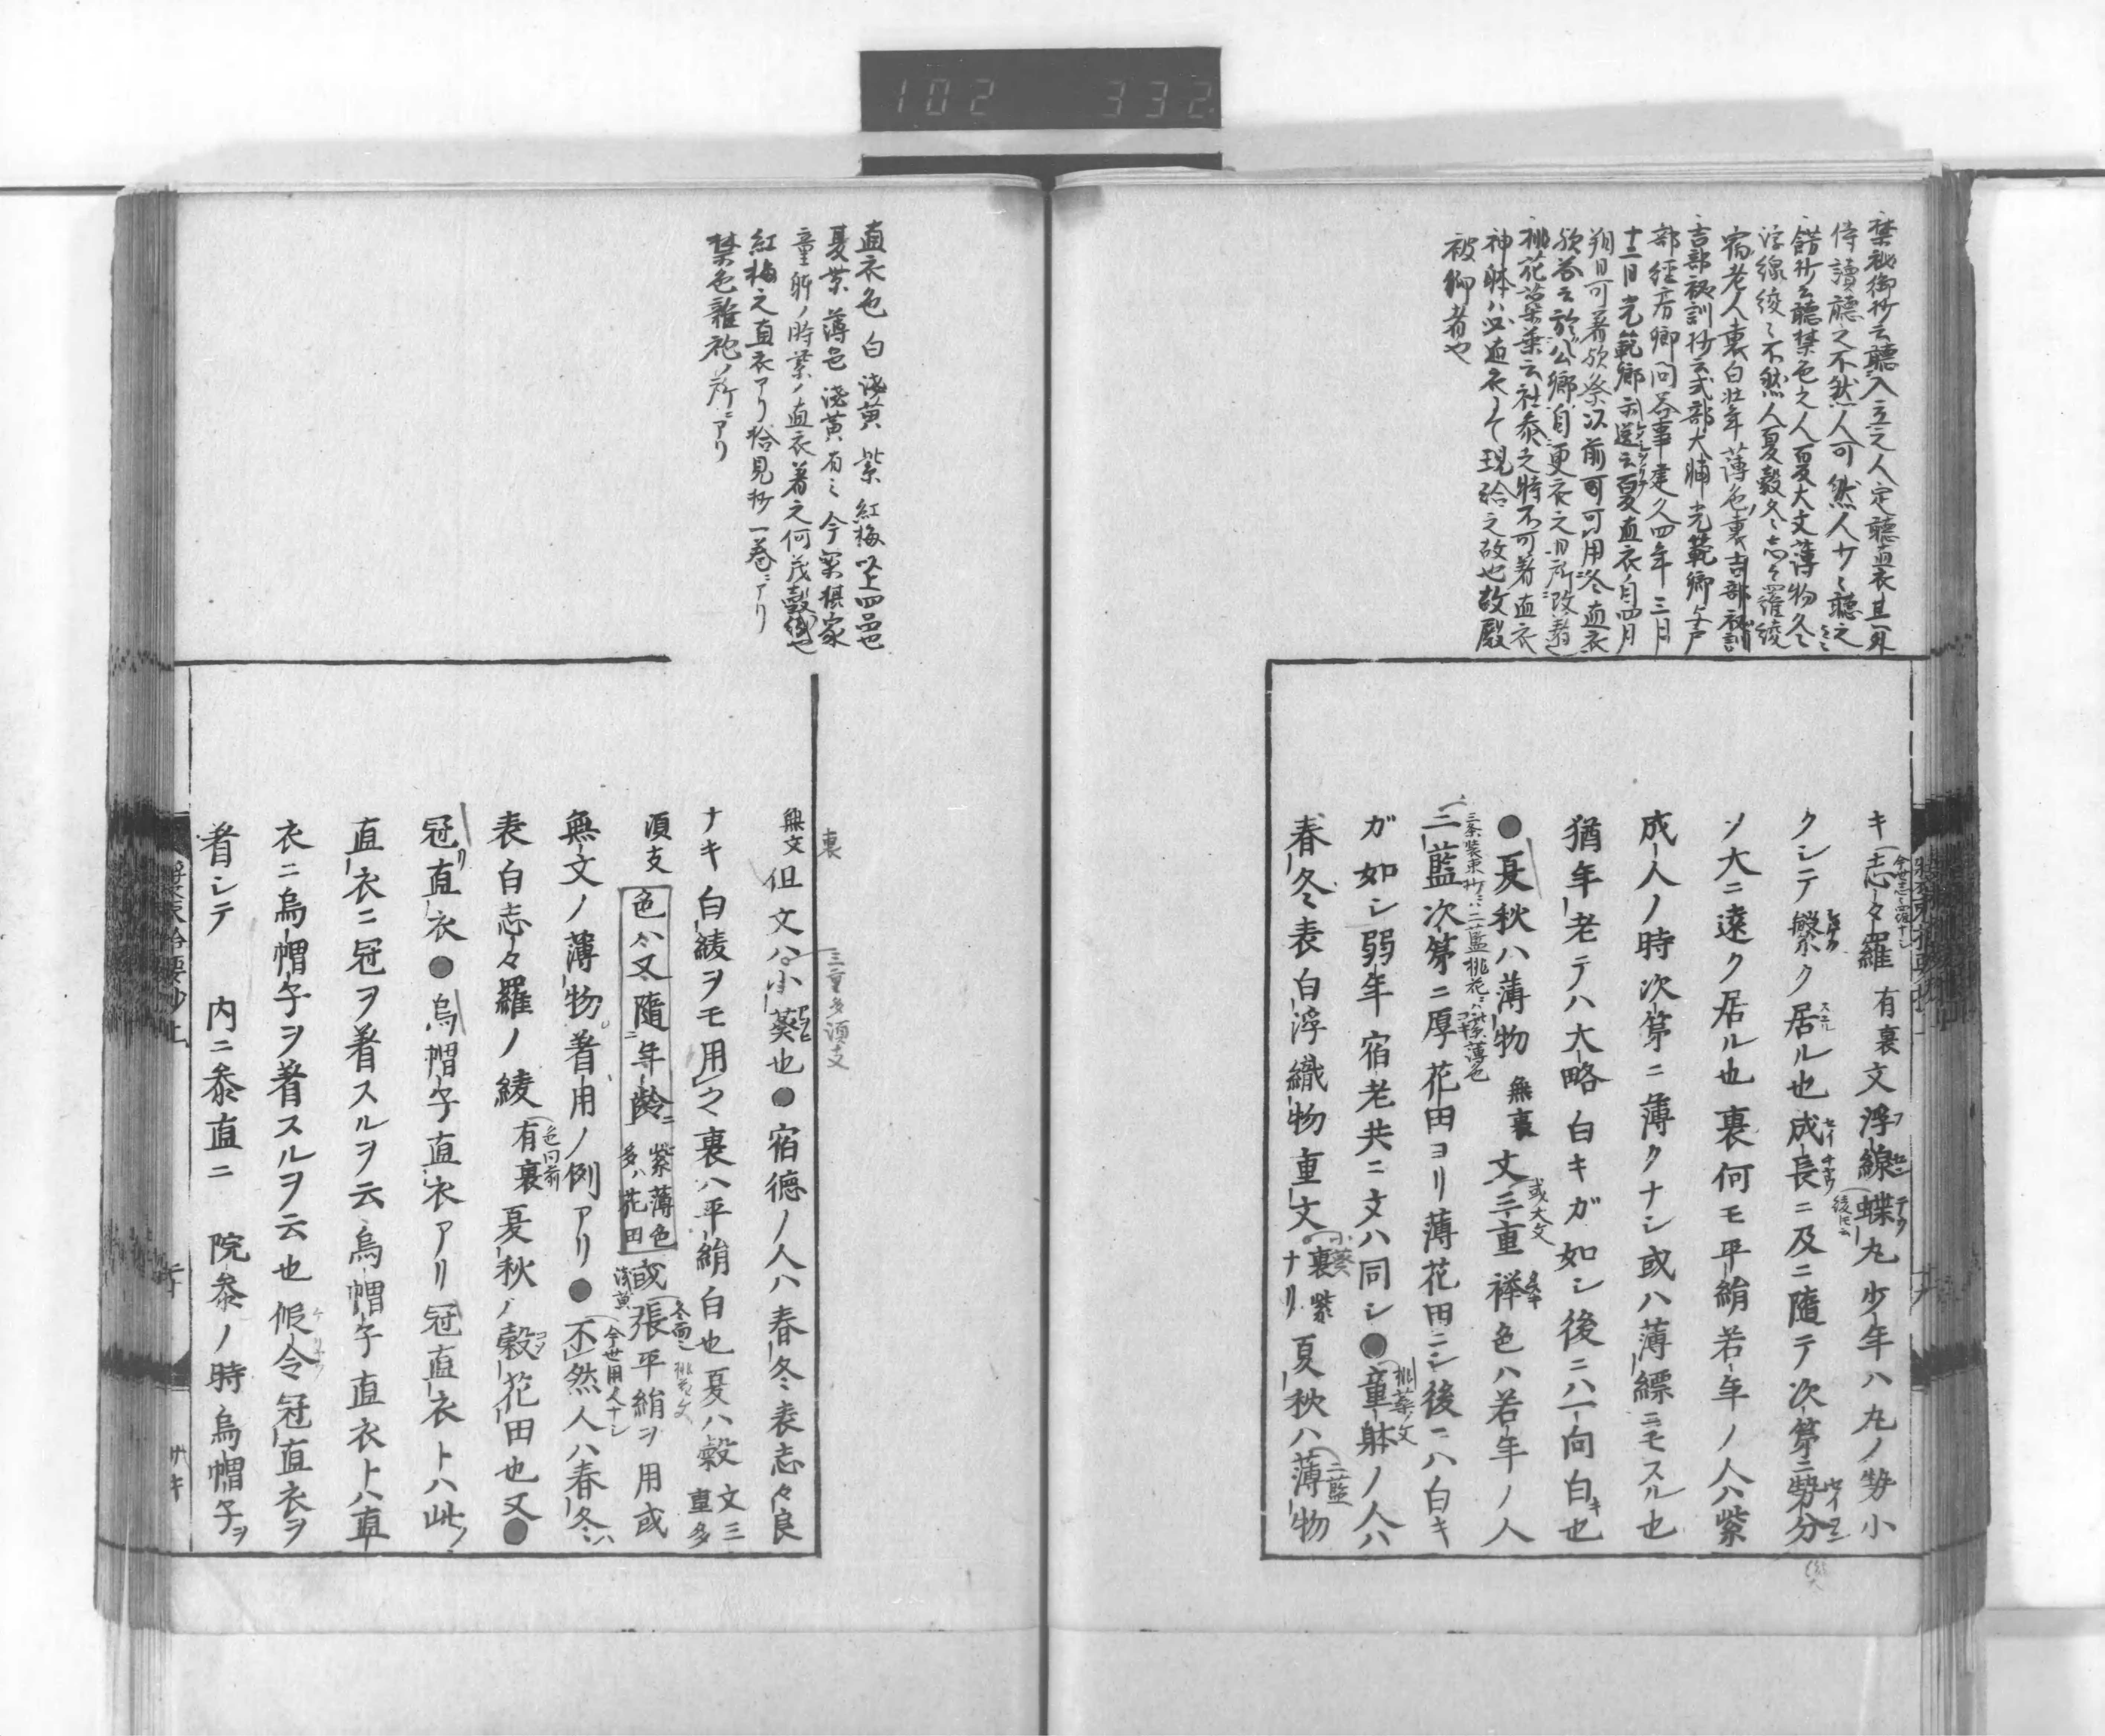 102 332
禁秘御抄云聽入立之人定聽直衣其外
侍讀聽之不然人可然人少々聽之
餝抄云聽禁色之人夏大文薄物冬ハ
浮線綾々不然人夏縠冬志々羅綾
宿老人裏白壯年薄色裏吉部秘訓
吉部秘訓抄云式部大輔光範卿与戸
部經房卿問答事建久四年三月
十二日光範卿示送云夏直衣自四月
朔日可著欤祭以前可用冬直衣
欤答云於公卿自更衣之日所改著
桃花蘂葉云社參之時不可著直衣
神躰ハ必直衣ニて現給之故也故殿
被仰者也
キ志々羅 有裏 文浮線蝶丸少年ハ丸ノ勢小
クシテ繁ク居ル也成長ニ及ニ隨テ次第ニ勢分
ソ大ニ遠ク居ル也裏何モ平絹若年ノ人ハ紫
成人ノ時次第ニ薄クナシ或ハ薄縹ニモスル也
猶年老テハ大略白キガ如シ後ニハ一向白キ也
●夏秋ハ薄物 無裏 文三重襷 或大文 色ハ若年ノ人
三条装束抄ニハ二藍桃花ニハ
二藍次第ニ厚花田ヨリ薄花田ニシ後ニハ白キ
ガ如シ弱年宿老共ニ文ハ同シ●童躰ノ人ハ
春冬表白浮織物重文 小葵 裏紫ナリ 夏秋ハ薄物 二藍
直衣色 白 淺黄 紫 紅梅 以上四色也
夏紫 薄色 淺黄有之 今案摂家
童躰ノ時紫ノ直衣着之何茂
紅梅之直衣アリ拾見抄一巻ニアリ
禁色雜袍ノ所ニアリ
裏 三重多須支
無文 但文ハ小葵也●宿德ノ人ハ春冬表志々良
ナキ白綾ヲモ用之裏ハ平絹白也夏ハ縠 文三重多
須支 色ハ又隨年齡 紫薄色 多ハ花田 淺黄 或張平絹ヲ用或
無文ノ薄物着用ノ例アリ●不然人ハ春冬ハ
今世用人ナシ
表白志々羅ノ綾 有裏 色同前 夏秋ノ縠花田也又●
冠直衣●烏帽子直衣アリ冠直衣トハ此ノ
直衣ニ冠ヲ着スルヲ云烏帽子直衣トハ直
衣ニ烏帽子ヲ着スルヲ云也假令冠直衣ヲ
着シテ 内ニ參直ニ 院參ノ時烏帽子ヲ